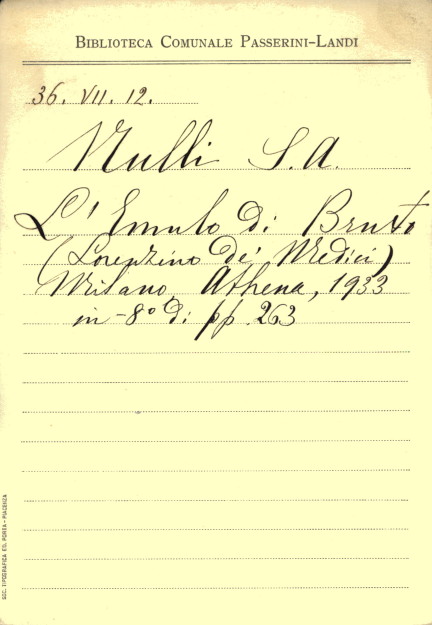 BIBLIOTECA COMUNALE PASSERINI-LANDI
36. VII. 12.
Nulli S. A.
L'Emulo di Bruto
(Lorenzino dei Medici)
Milano, Athena, 1933
in-8º di pp. 263
SOC. TIPOGRAFICA ED. PORTA - PIACENZA